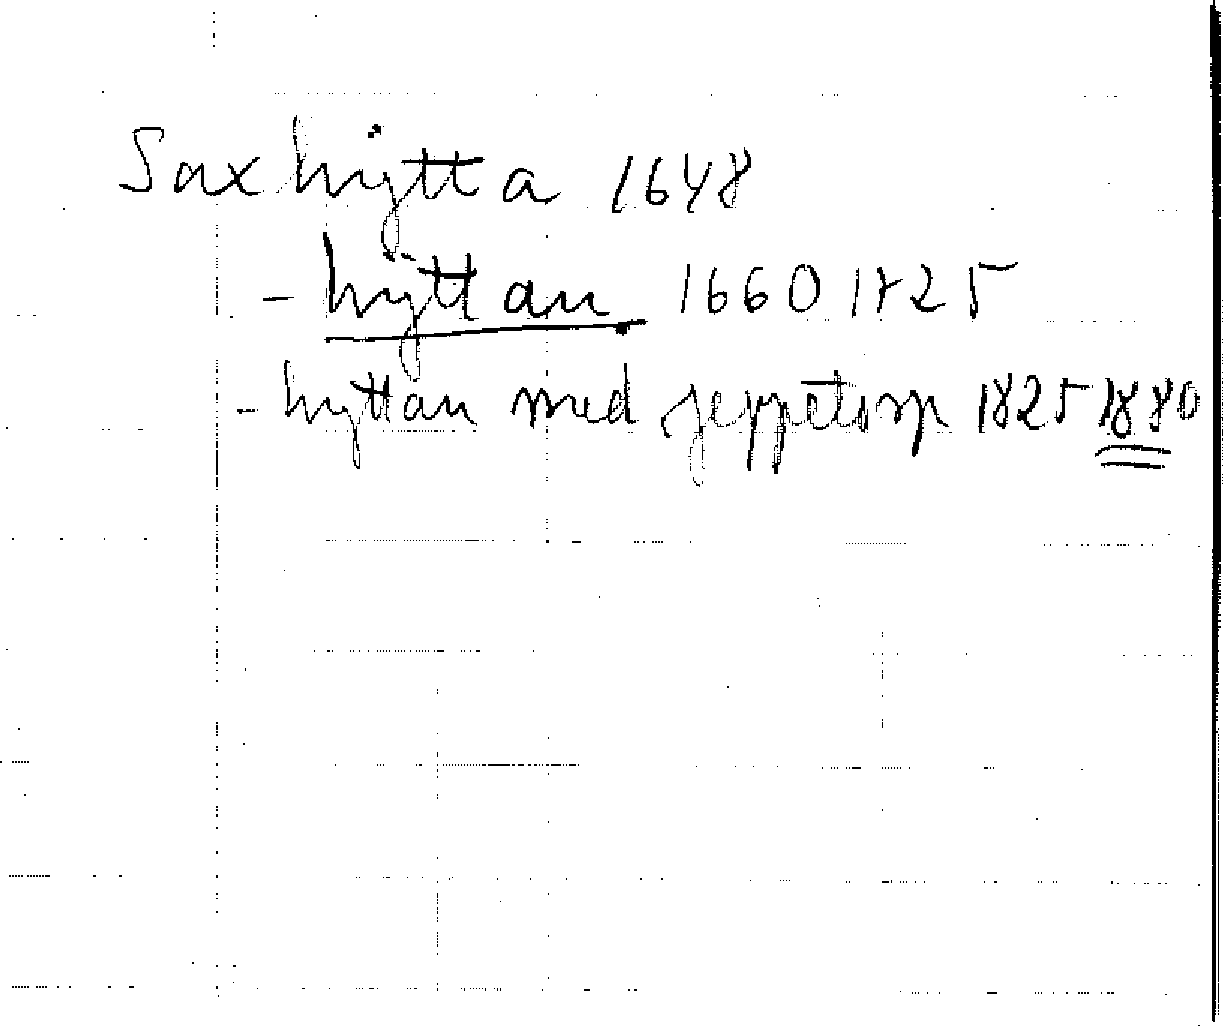 Saxhytta 1648
- hyttan 1660 1825
- hyttan med Jeppetorp 1825 1880